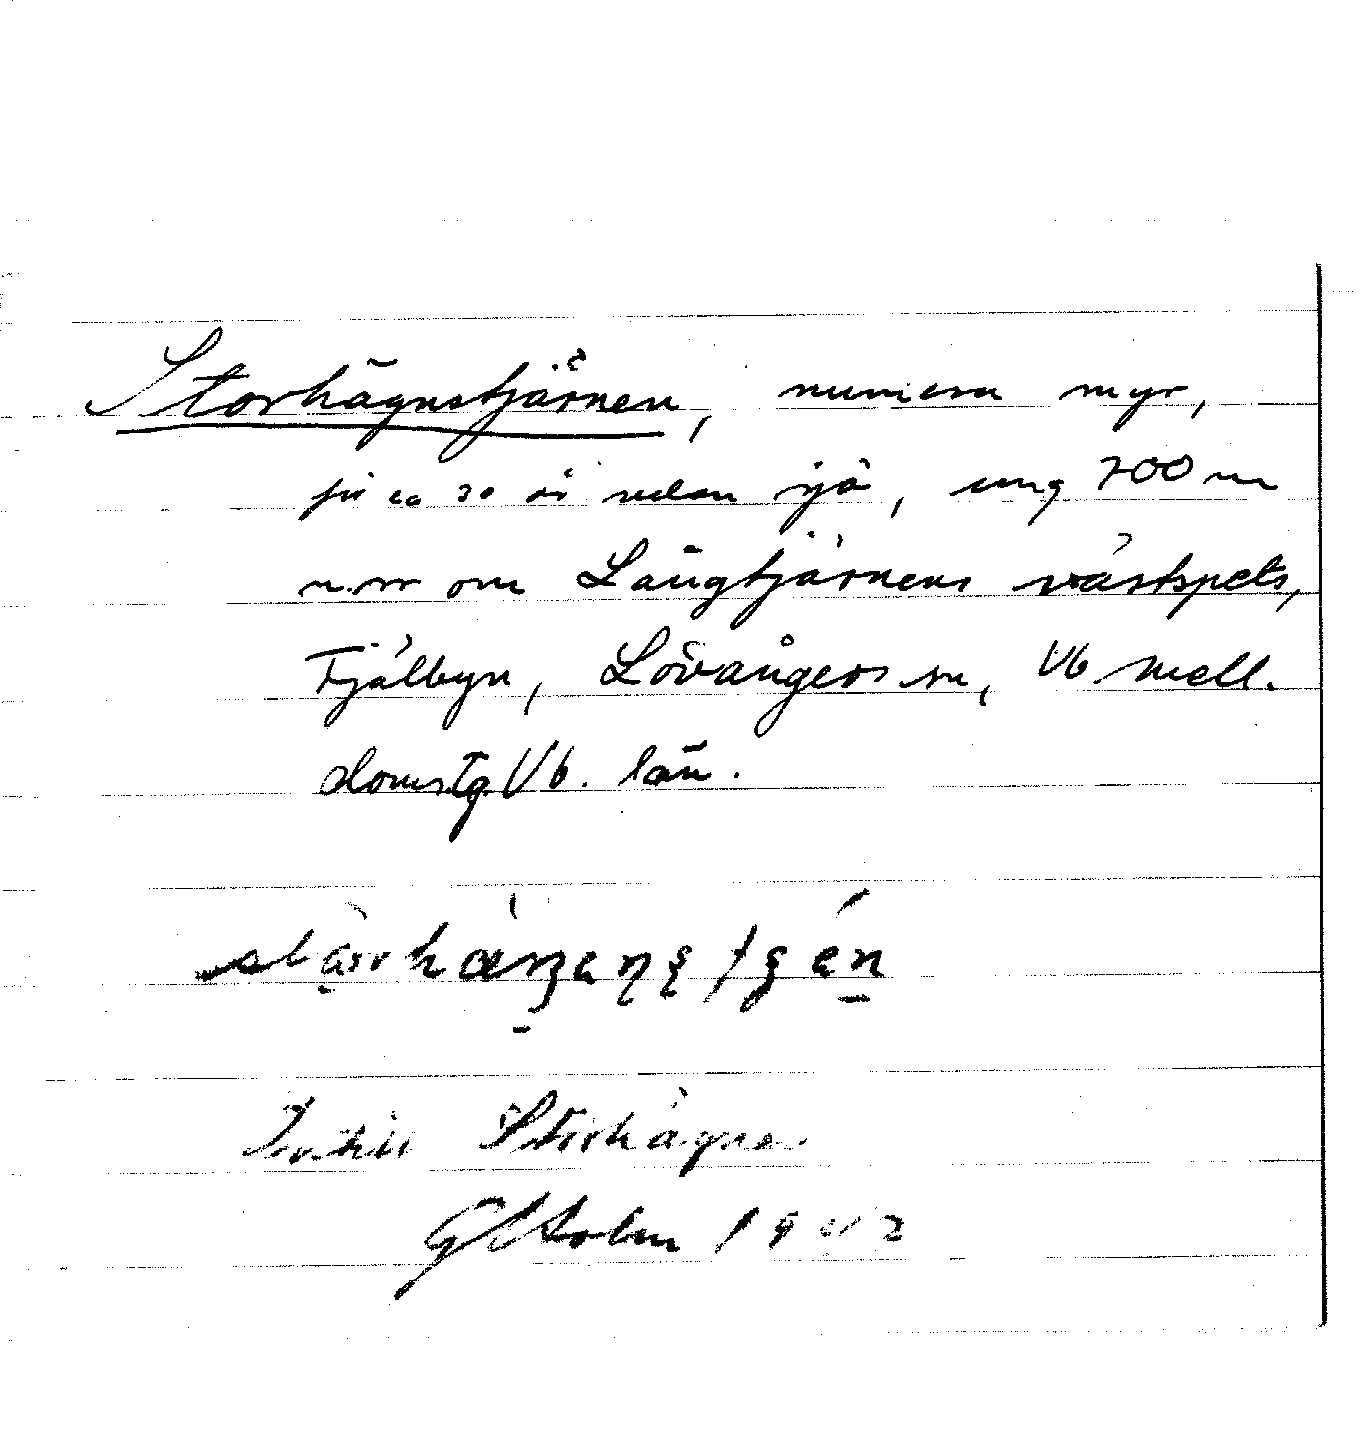 Storhägnstjärnen, numera myr,
för ca 30 år sedan sjö, ung 700 m
n.nv om Långtjärnens västspets,
Fjälbyn, Lövångers sn, Vb mell.
domstg Vb. län.
Intill Storhägna.
G Holm 1942